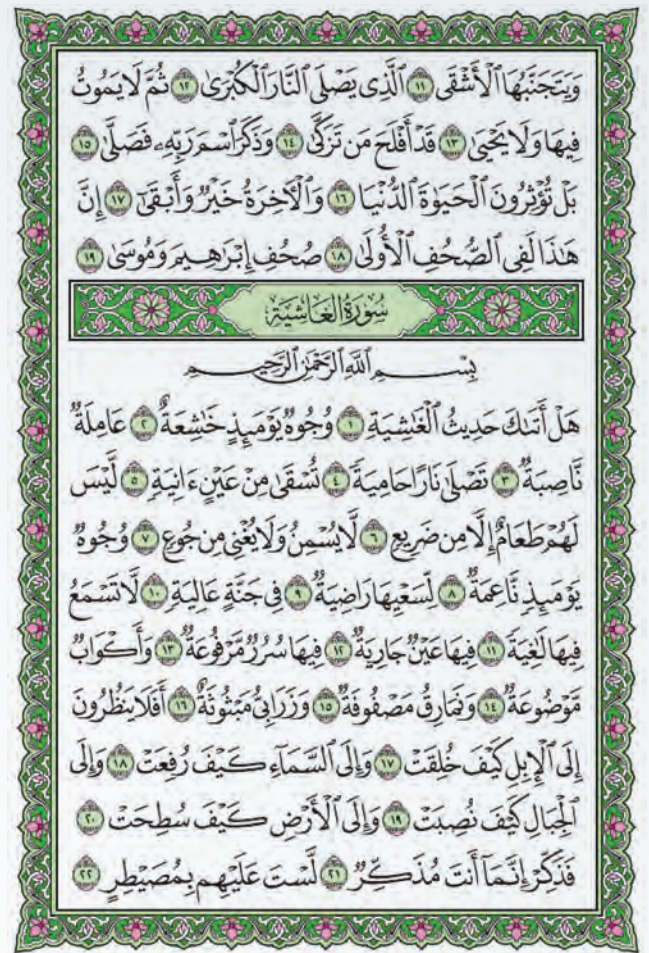 وَيَتَجَنَّبُهَا ٱلْأَشْقَى ١١ ٱلَّذِى يَصْلَى ٱلنَّارَ ٱلْكُبْرَىٰ ١٢ ثُمَّ لَا يَمُوتُ
فِيهَا وَلَا يَحْيَىٰ ١٣ قَدْ أَفْلَحَ مَن تَزَكَّىٰ ١٤ وَذَكَرَ ٱسْمَ رَبِّهِۦ فَصَلَّىٰ ١٥
بَلْ تُؤْثِرُونَ ٱلْحَيَوٰةَ ٱلدُّنْيَا ١٦ وَٱلْءَاخِرَةُ خَيْرٌ وَأَبْقَىٰٓ ١٧ إِنَّ
هَٰذَا لَفِى ٱلصُّحُفِ ٱلْأُولَىٰ ١٨ صُحُفِ إِبْرَٰهِيمَ وَمُوسَىٰ ١٩
سُورَةُ الغَاشِيَةِ
بِسْمِ ٱللَّهِ ٱلرَّحْمَٰنِ ٱلرَّحِيمِ
هَلْ أَتَىٰكَ حَدِيثُ ٱلْغَٰشِيَةِ ١ وُجُوهٌ يَوْمَئِذٍ خَٰشِعَةٌ ٢ عَامِلَةٌ
نَّاصِبَةٌ ٣ تَصْلَىٰ نَارًا حَامِيَةً ٤ تُسْقَىٰ مِنْ عَيْنٍ ءَانِيَةٍ ٥ لَّيْسَ
لَهُمْ طَعَامٌ إِلَّا مِن ضَرِيعٍ ٦ لَّا يُسْمِنُ وَلَا يُغْنِى مِن جُوعٍ ٧ وُجُوهٌ
يَوْمَئِذٍ نَّاعِمَةٌ ٨ لِّسَعْيِهَا رَاضِيَةٌ ٩ فِى جَنَّةٍ عَالِيَةٍ ١٠ لَّا تَسْمَعُ
فِيهَا لَٰغِيَةً ١١ فِيهَا عَيْنٌ جَارِيَةٌ ١٢ فِيهَا سُرُرٌ مَّرْفُوعَةٌ ١٣ وَأَكْوَابٌ
مَّوْضُوعَةٌ ١٤ وَنَمَارِقُ مَصْفُوفَةٌ ١٥ وَزَرَابِىُّ مَبْثُوثَةٌ ١٦ أَفَلَا يَنظُرُونَ
إِلَى ٱلْإِبِلِ كَيْفَ خُلِقَتْ ١٧ وَإِلَى ٱلسَّمَآءِ كَيْفَ رُفِعَتْ ١٨ وَإِلَى
ٱلْجِبَالِ كَيْفَ نُصِبَتْ ١٩ وَإِلَى ٱلْأَرْضِ كَيْفَ سُطِحَتْ ٢٠
فَذَكِّرْ إِنَّمَآ أَنتَ مُذَكِّرٌ ٢١ لَّسْتَ عَلَيْهِم بِمُصَيْطِرٍ ٢٢